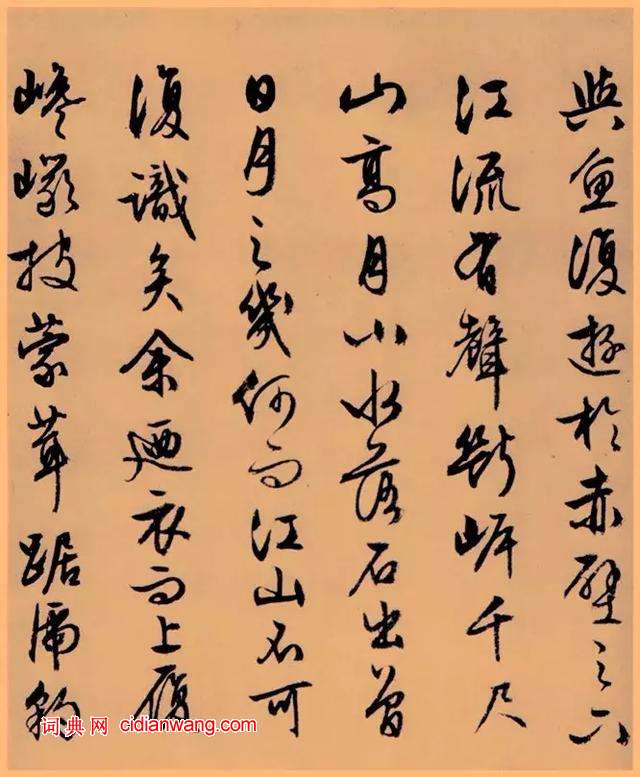 與魚復遊於赤壁之下
江流有聲斷岸千尺
山高月小水落石出曾
日月之幾何而江山不可
復識矣余迺衣而上履
巉巖披蒙茸踞虎豹
词典网 cidianwang.com